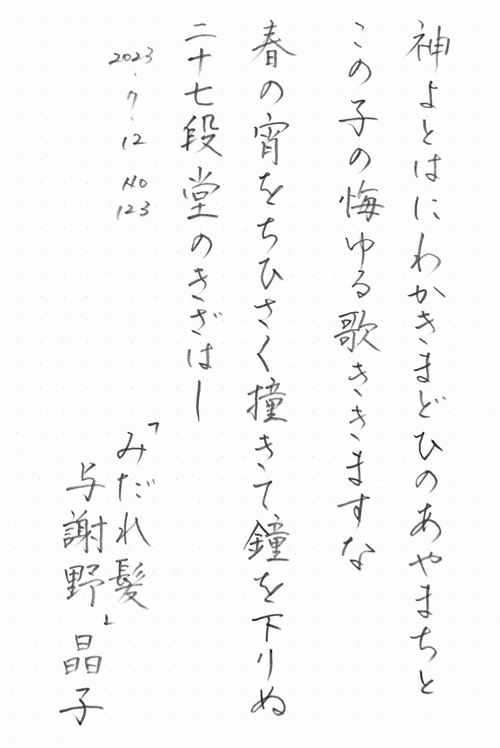 神よとはにわかきまどひのあやまちと
この子の悔ゆる歌ききますな
春の宵をちひさく撞きて鐘を下りぬ
二十七段堂のきざはし
2023.7.12 No 123
「みだれ髪」
与謝野 晶子